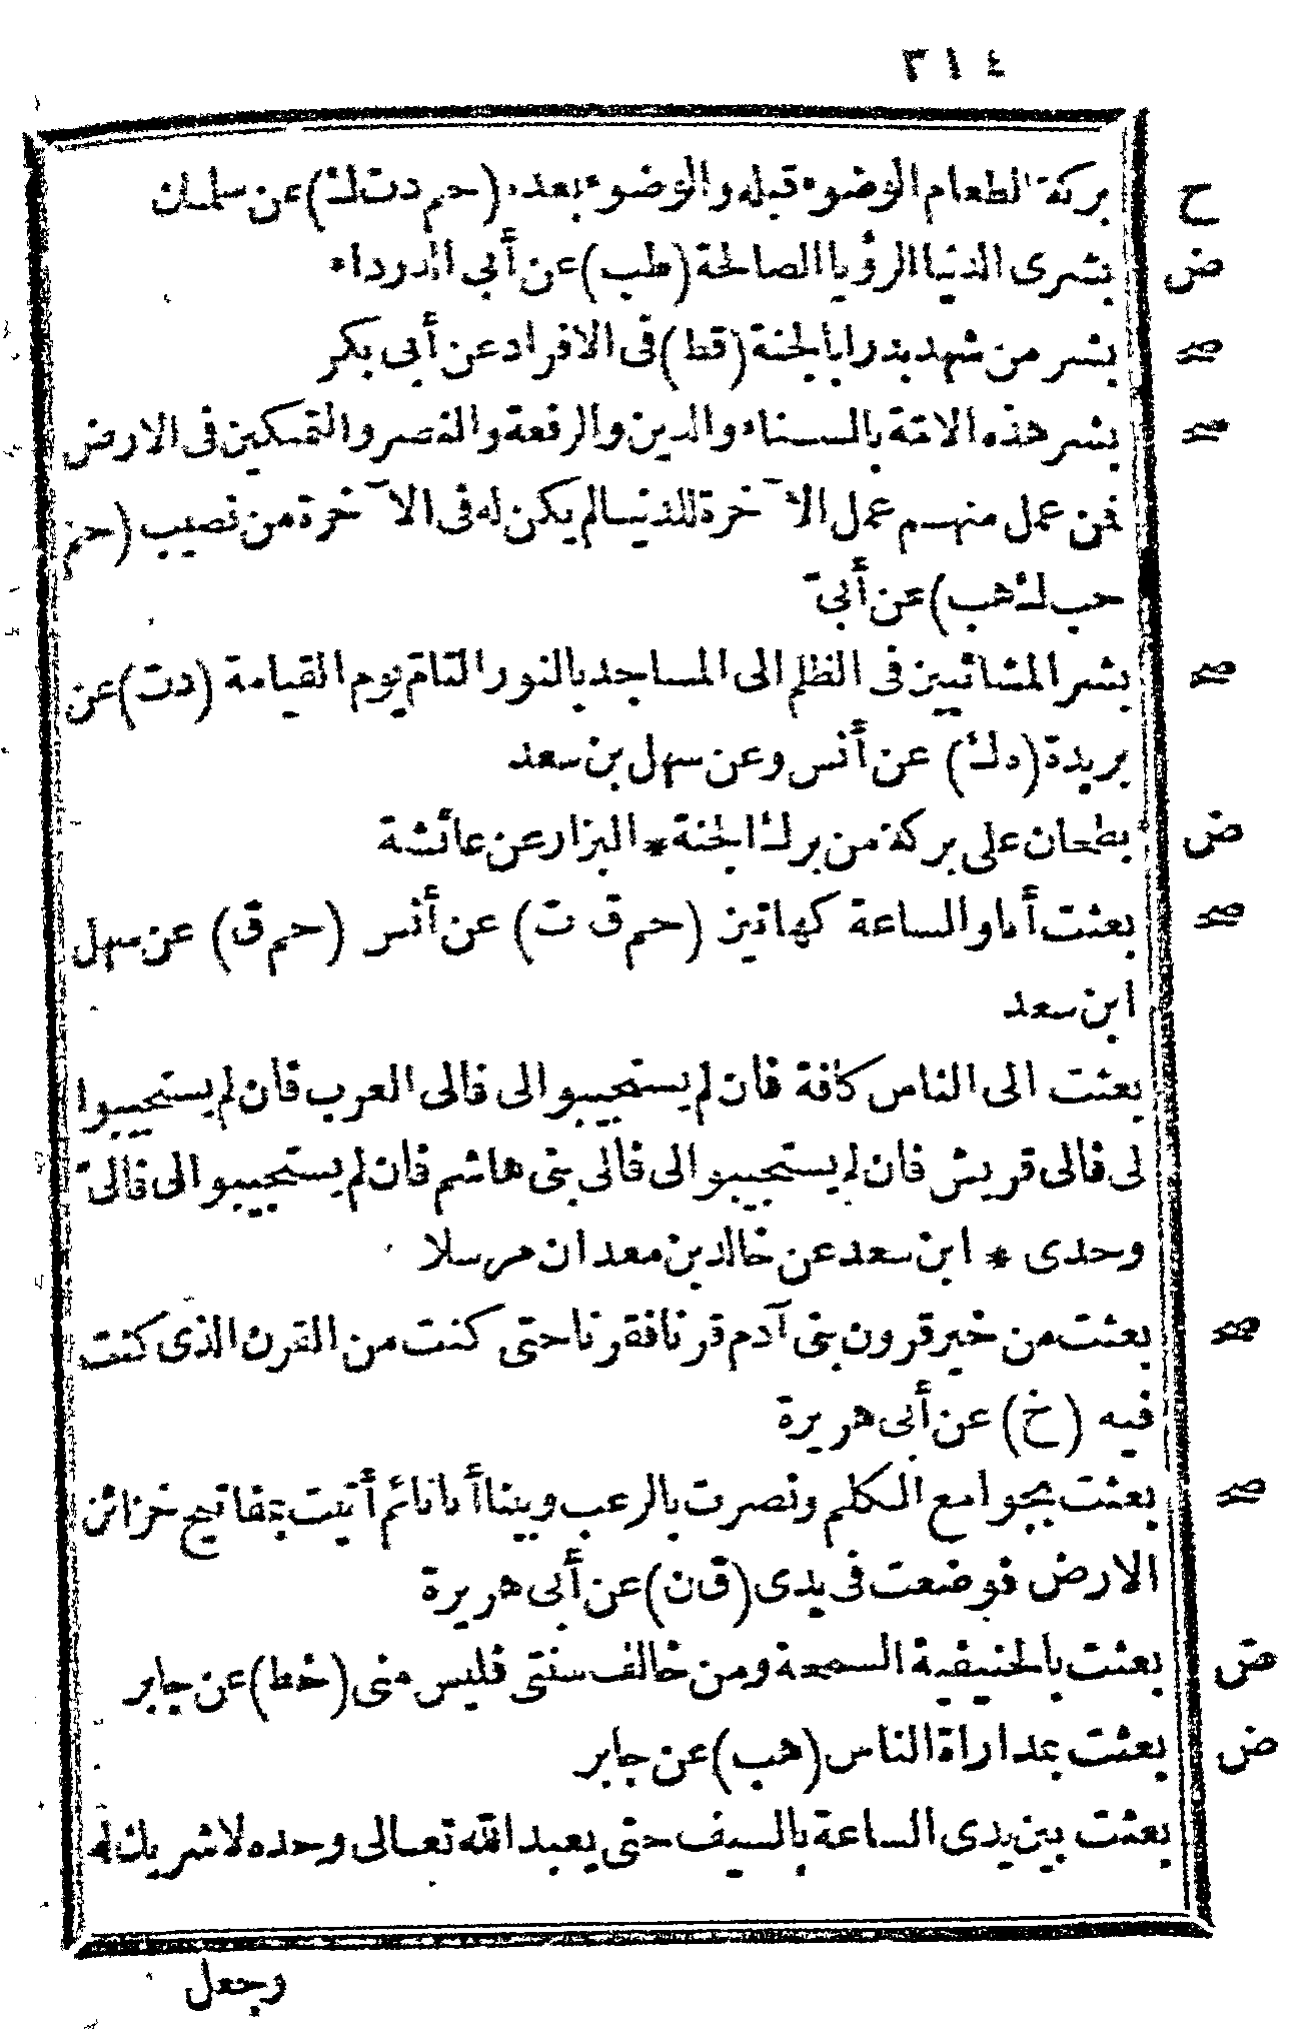 ٣١٤
ح بركة الطعام الوضوء قبله والوضوء بعده (حم د ت ك) عن سلمان
ض بشرى الدنيا الرؤيا الصالحة (طب) عن أبي الدرداء
صح بشر من شهد بدرا بالجنة (قط) فى الافراد عن أبى بكر
صح بشر هذه الامّة بالسناء والدين والرفعة والنصر والتمكين فى الارض
فمن عمل منهم عمل الآخرة للدنيا لم يكن له فى الآخرة من نصيب (حم
حب ك هب) عن أبىّ
صح بشر المشائين فى الظلم الى المساجد بالنور التامّ يوم القيامة (د ت) عن
بريدة (ه ك) عن أنس وعن سهل بن سعد
ض بطحان على بركة من برك الجنة * البزار عن عائشة
صح بعثت أنا والساعة كهاتين (حم ق ت) عن أنس (حم ق) عن سهل
ابن سعد
بعثت الى الناس كافة فان لم يستجيبوا لى فالى العرب فان لم يستجيبوا
لى فالى قريش فان لم يستجيبوا لى فالى بنى هاشم فان لم يستجيبوا لى فالىّ
وحدى * ابن سعد عن خالد بن معدان مرسلا
صح بعثت من خير قرون بنى آدم قرنا فقرنا حتى كنت من القرن الذى كنت
فيه (خ) عن أبى هريرة
صح بعثت بجوامع الكلم ونصرت بالرعب وبينا أنا نائم أتيت بمفاتيح خزائن
الارض فوضعت فى يدى (ق ن) عن أبى هريرة
ض بعثت بالحنيفية السمحة ومن خالف سنتى فليس منى (خط) عن جابر
ض بعثت بمداراة الناس (هب) عن جابر
بعثت بين يدى الساعة بالسيف حتى يعبد الله تعالى وحده لا شريك له
وجعل